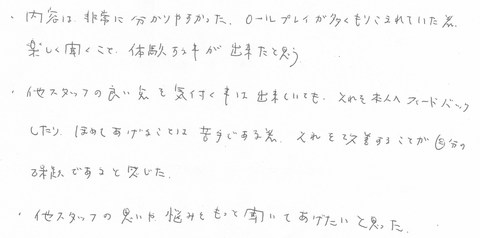 ・内容は、非常に分かりやすかった。ロールプレイが多くもりこまれていた為、
楽しく聞くこと、体験する事が出来たと思う
・他スタッフの良い点を気付く事は出来ていても、それを本人へフィードバック
したり、ほめてあげることは苦手である為、それを改善することが自分の
課題であると感じた。
・他スタッフの思いや悩みをもっと聞いてあげたいと思った。